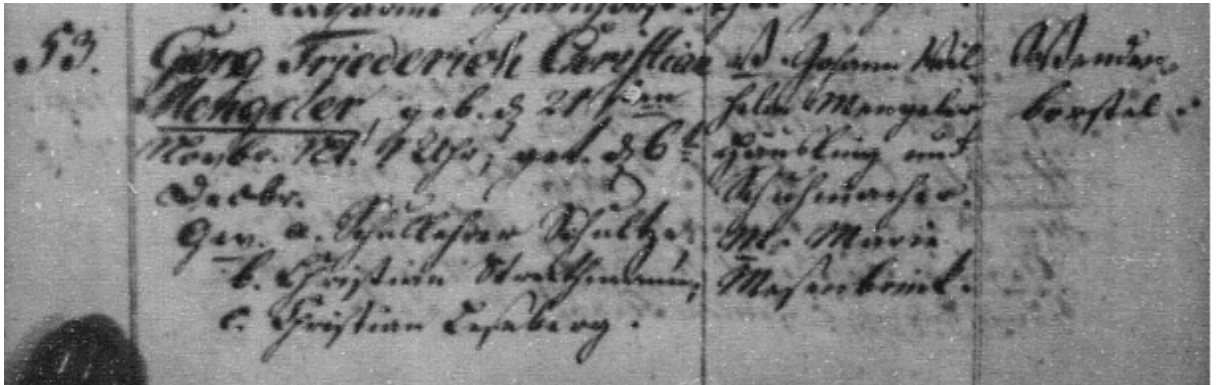 b. Catharine
53. Georg Friederich Christian
Mengeler, geb. d 21ten
Novbr. Nt. 1 Uhr, get. d 6t
Decbr.
Gev. a. Schullehrer Schultze.
b. Christian
c. Christian Leseberg.
V. Johann Wil-
helm Mengeler
Häusling und
Schuhmacher.
M. Marie
Mesenbrink.
Wenden-
borstel.